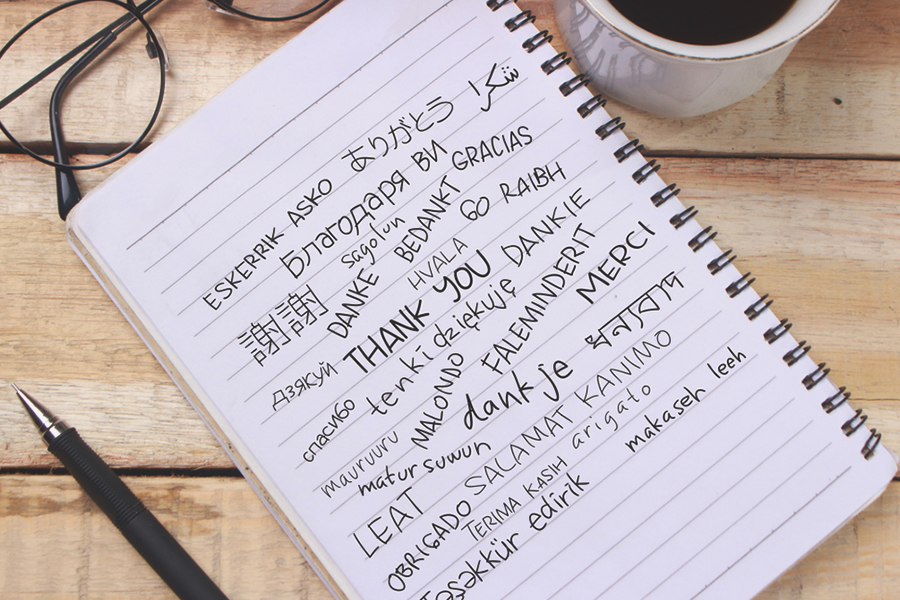 ESKERRIK ASKO ありがとう شكرا
Благодаря ВИ GRACIAS
謝謝 sagolun BEDANKT GO RAIBH
DANKE HVALA DANKIE
Дзякуй THANK YOU FALEMINDERIT MERCI
спасибо tenki dziękuję
mauruuru MALONDO dank je ধন্যবাদ
matur suwun SALAMAT KANIMO
LEAT TERIMA KASIH arigato makaseh leeh
OBRIGADO
Təşəkkür edirik